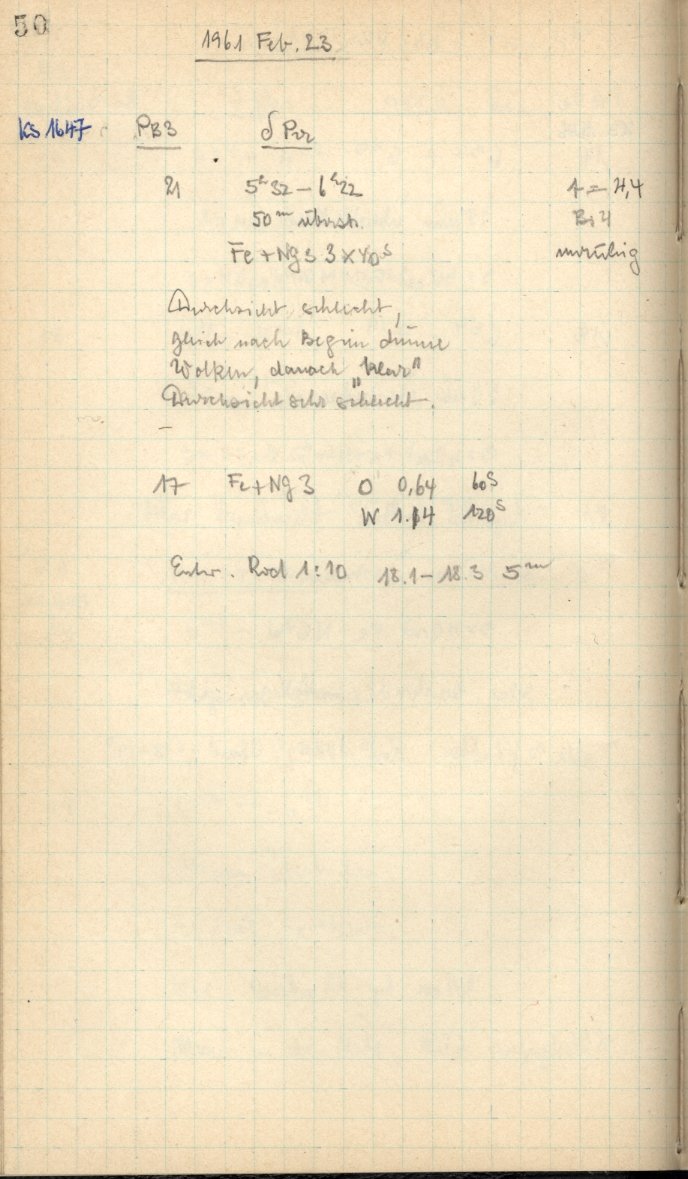 50
1961 Feb. 23
KS 1647 PB3 δ Per
21 5ʰ32 – 6ʰ22
50ᵐ überstr.
Fe + Ng 3 3×40ˢ
t = 4,4
Bi 4
unruhig
Durchsicht schlecht,
gleich nach Beginn dünne
Wolken, danach „klar"
Durchsicht sehr schlecht.
17 Fe + Ng 3 O 0,64 60ˢ
W 1.14 120ˢ
Entw. Rod 1:10 18.1 – 18.3 5ᵐ